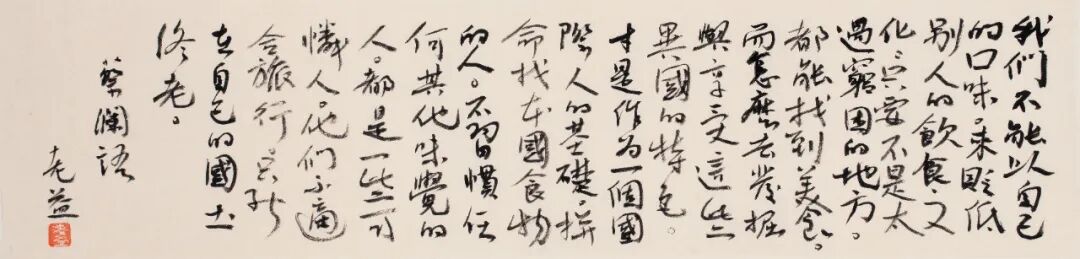 我們不能以自己
的口味，來貶低
別人的飲食文
化。只要不是太
過窮困的地方。
都能找到美食。
而怎麼去發掘
與享受這些
異國的特色。
才是作為一個國
際人的基礎。拼
命找本國食物
的人。不習慣任
何其他味覺的
人。都是一些可
憐人。他們不適
合旅行。只能
在自己的國土
終老。
蔡瀾語